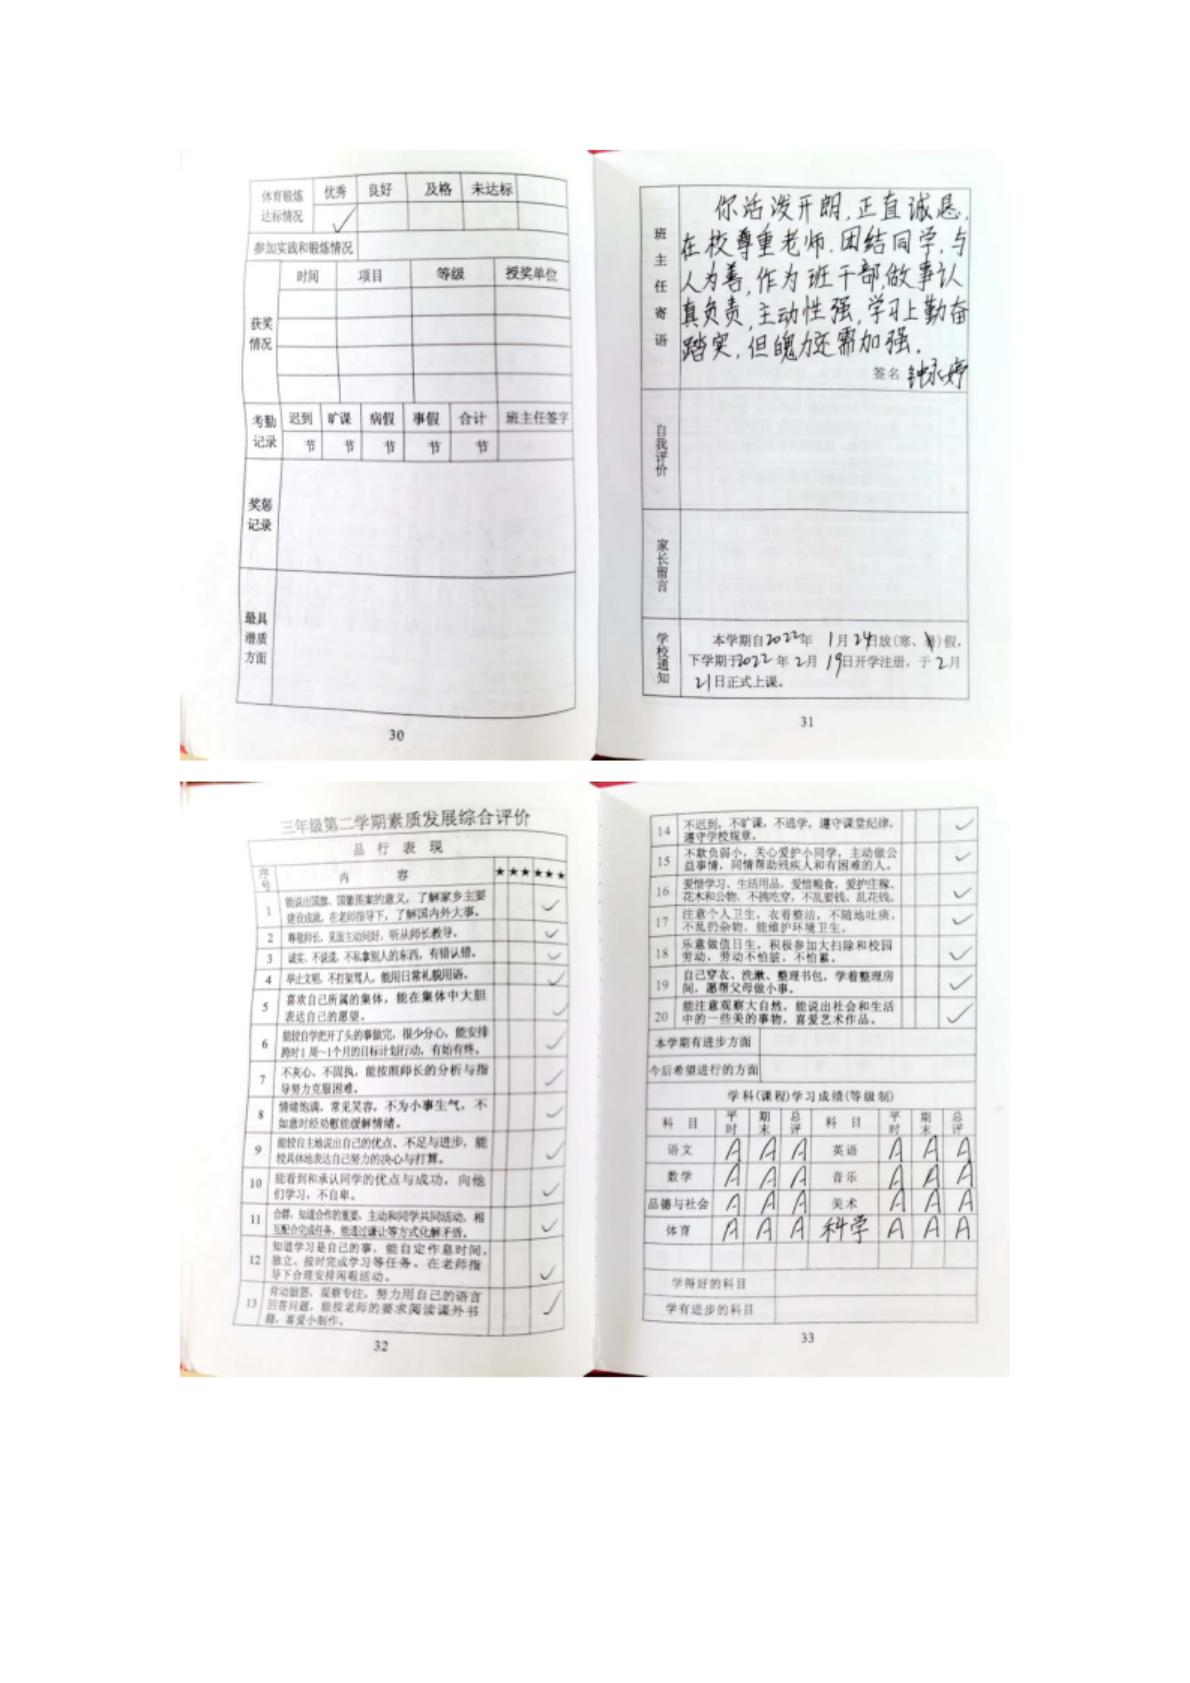 体育锻炼 优秀 良好 及格 未达标
达标情况 ✓
参加实践和锻炼情况
时间 项目 等级 授奖单位
获奖
情况
考勤 迟到 旷课 病假 事假 合计 班主任签字
记录 节 节 节 节 节
奖惩
记录
最具
潜质
方面
30
班主任寄语
你活泼开朗,正直诚恳,
在校尊重老师.团结同学,与
人为善,作为班干部,做事认
真负责,主动性强,学习上勤奋
踏实,但魄力还需加强.
签名 钟永婷
自我评价
家长留言
学校通知
本学期自2022年 1月24日放(寒、)假,
下学期于2022年2月19日开学注册,于2月
21日正式上课。
31
三年级第二学期素质发展综合评价
品 行 表 现
序号 内 容 ★★★★★★
1 能说出国旗、国徽图案的意义,了解家乡主要
建设成就,在老师指导下,了解国内外大事。 ✓
2 尊敬师长,见面主动问好,听从师长教导。 ✓
3 诚实、不说谎,不私拿别人的东西,有错认错。 ✓
4 举止文明,不打架骂人,能用日常礼貌用语。 ✓
5 喜欢自己所属的集体,能在集体中大胆
表达自己的愿望。 ✓
6 能较自学把开了头的事做完,很少分心,能安排
跨时1周~1个月的目标计划行动,有始有终。 ✓
7 不灰心,不固执,能按照师长的分析与指
导努力克服困难。 ✓
8 情绪饱满,常见笑容,不为小事生气,不
如意时经劝慰能缓解情绪。 ✓
9 能较自主地说出自己的优点、不足与进步,能
较具体地表达自己努力的决心与打算。 ✓
10 能看到和承认同学的优点与成功,向他
们学习,不自卑。 ✓
11 合群,知道合作的重要,主动和同学共同活动,相
互配合完成任务,能通过谦让等方式化解矛盾。 ✓
12 知道学习是自己的事,能自定作息时间,
独立、按时完成学习等任务。在老师指
导下合理安排闲暇活动。 ✓
13 肯动脑筋,观察专注,努力用自己的语言
回答问题,能按老师的要求阅读课外书
籍,喜爱小制作。 ✓
32
14 不迟到,不旷课,不逃学,遵守课堂纪律,
遵守学校规章。 ✓
15 不欺负弱小,关心爱护小同学,主动做公
益事情,同情帮助残疾人和有困难的人。 ✓
16 爱惜学习、生活用品,爱惜粮食,爱护庄稼、
花木和公物,不挑吃穿,不乱要钱、乱花钱。 ✓
17 注意个人卫生,衣着整洁,不随地吐痰,
不乱扔杂物,能维护环境卫生。 ✓
18 乐意做值日生,积极参加大扫除和校园
劳动,劳动不怕脏,不怕累。 ✓
19 自己穿衣、洗漱、整理书包,学着整理房
间,愿帮父母做小事。 ✓
20 能注意观察大自然,能说出社会和生活
中的一些美的事物,喜爱艺术作品。 ✓
本学期有进步方面
今后希望进行的方面
学科(课程)学习成绩(等级制)
科 目 平时 期末 总评 科 目 平时 期末 总评
语文 A A A 英语 A A A
数学 A A A 音乐 A A A
品德与社会 A A A 美术 A A A
体育 A A A 科学 A A A
学得好的科目
学有进步的科目
33